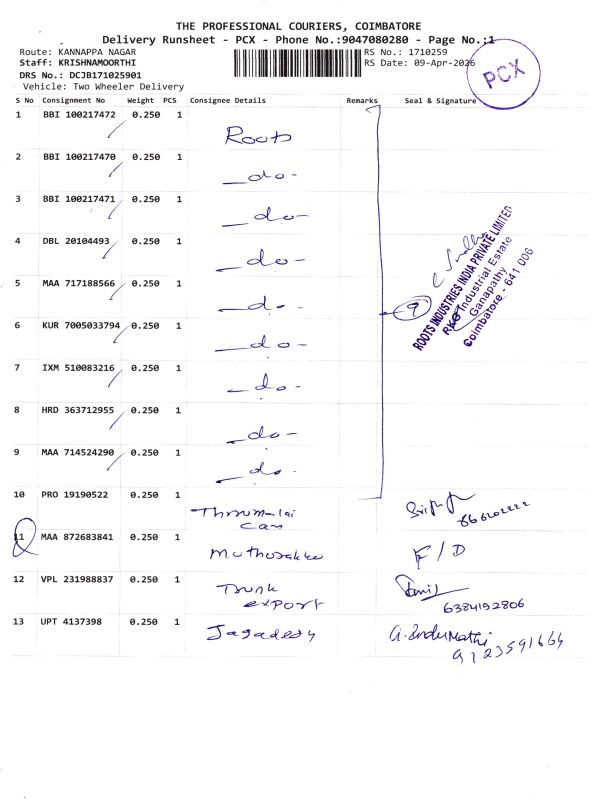 THE PROFESSIONAL COURIERS, COIMBATORE
Delivery Runsheet - PCX - Phone No.:9047080280 - Page No.:1
Route: KANNAPPA NAGAR
RS No.: 1710259
Staff: KRISHNAMOORTHI
RS Date: 09-Apr-2026
DRS No.: DCJB171025901
Vehicle: Two Wheeler Delivery
PCX
S No Consignment No Weight PCS Consignee Details Remarks Seal & Signature
1 BBI 100217472 0.250 1 Roots
2 BBI 100217470 0.250 1 -do-
3 BBI 100217471 0.250 1 -do-
4 DBL 20104493 0.250 1 -do-
5 MAA 717188566 0.250 1 -do-
6 KUR 7005033794 0.250 1 -do-
7 IXM 510083216 0.250 1 -do-
8 HRD 363712955 0.250 1 -do-
9 MAA 714524290 0.250 1 -do-
9
ROOTS INDUSTRIES INDIA PRIVATE LIMITED
RKG Industrial Estate
Ganapathy
Coimbatore - 641 006
10 PRO 19190522 0.250 1 Thirumalai
Can
11 MAA 872683841 0.250 1 F/D
12 VPL 231988837 0.250 1 Trunk
export
6384192806
13 UPT 4137398 0.250 1 Jagadesh
G. InduMathi
9123591664